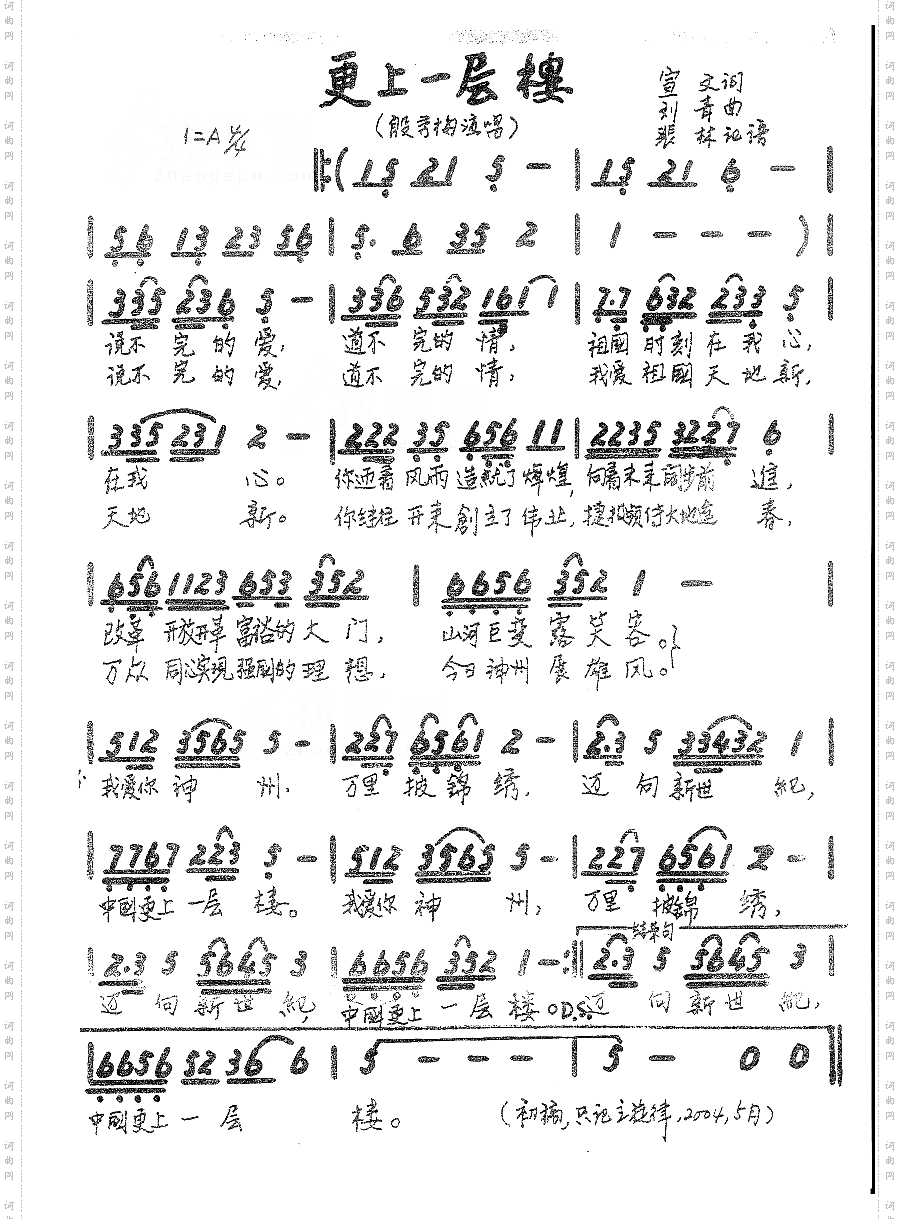 更上一层楼
宣文词
(殷秀梅演唱)
刘青曲
1=A 4/4
张林记谱
zhaogepu.com
(1 5 2 1 5 - | 1 5 2 1 6 - |
| 5 6 1 3 2 3 5 6 | 5. 6 3 5 2 | 1 - - - ) |
| 3 3 5 2 3 6 5 - | 3 3 6 5 3 2 1 6 1 1 | 7.7 6 3 2 2 3 3 5 |
说不完的爱, 道不完的情, 祖国时刻在我心,
说不完的爱, 道不完的情, 我爱祖国天地新,
| 3 3 5 2 3 1 2 - | 2 2 2 3 5 6 5 6 1 1 | 2 2 3 5 3 2 2 7 6 |
在我心。 你迎着风雨造就了辉煌, 向着未来阔步前进,
天地新。 你继往开来創立了伟业, 大地
春,
| 6 5 6 1 1 2 3 6 5 3 3 5 2 | 6 6 5 6 3 5 2 1 - |
改革开放开革富裕的大门, 山河巨变露笑容。
万众同心实现强国的理想, 今日神州展雄风。
| 5 1 2 3 5 6 5 5 - | 2 2 7 6 5 6 1 2 - | 2.3 5 3 3 4 3 2 1 |
我爱你神州, 万里披錦绣, 迈向新世紀,
| 7 7 6 7 2 2 3 5 - | 5 1 2 3 5 6 5 5 - | 2 2 7 6 5 6 1 2 - |
中國更上一层楼。 我爱你神州, 万里披錦绣,
结束句
| 2.3 5 5 6 4 5 3 | 6 6 5 6 3 5 2 1 - :| 2.3 5 5 6 4 5 3 |
迈向新世紀, 中國更上一层楼。D.S. 迈向新世紀,
| 6 6 5 6 5 2 3 6 6 | 5 - - - | 5 - 0 0 ||
中國更上一层楼。 (初稿,只记主旋律,2004,5月)
词曲网